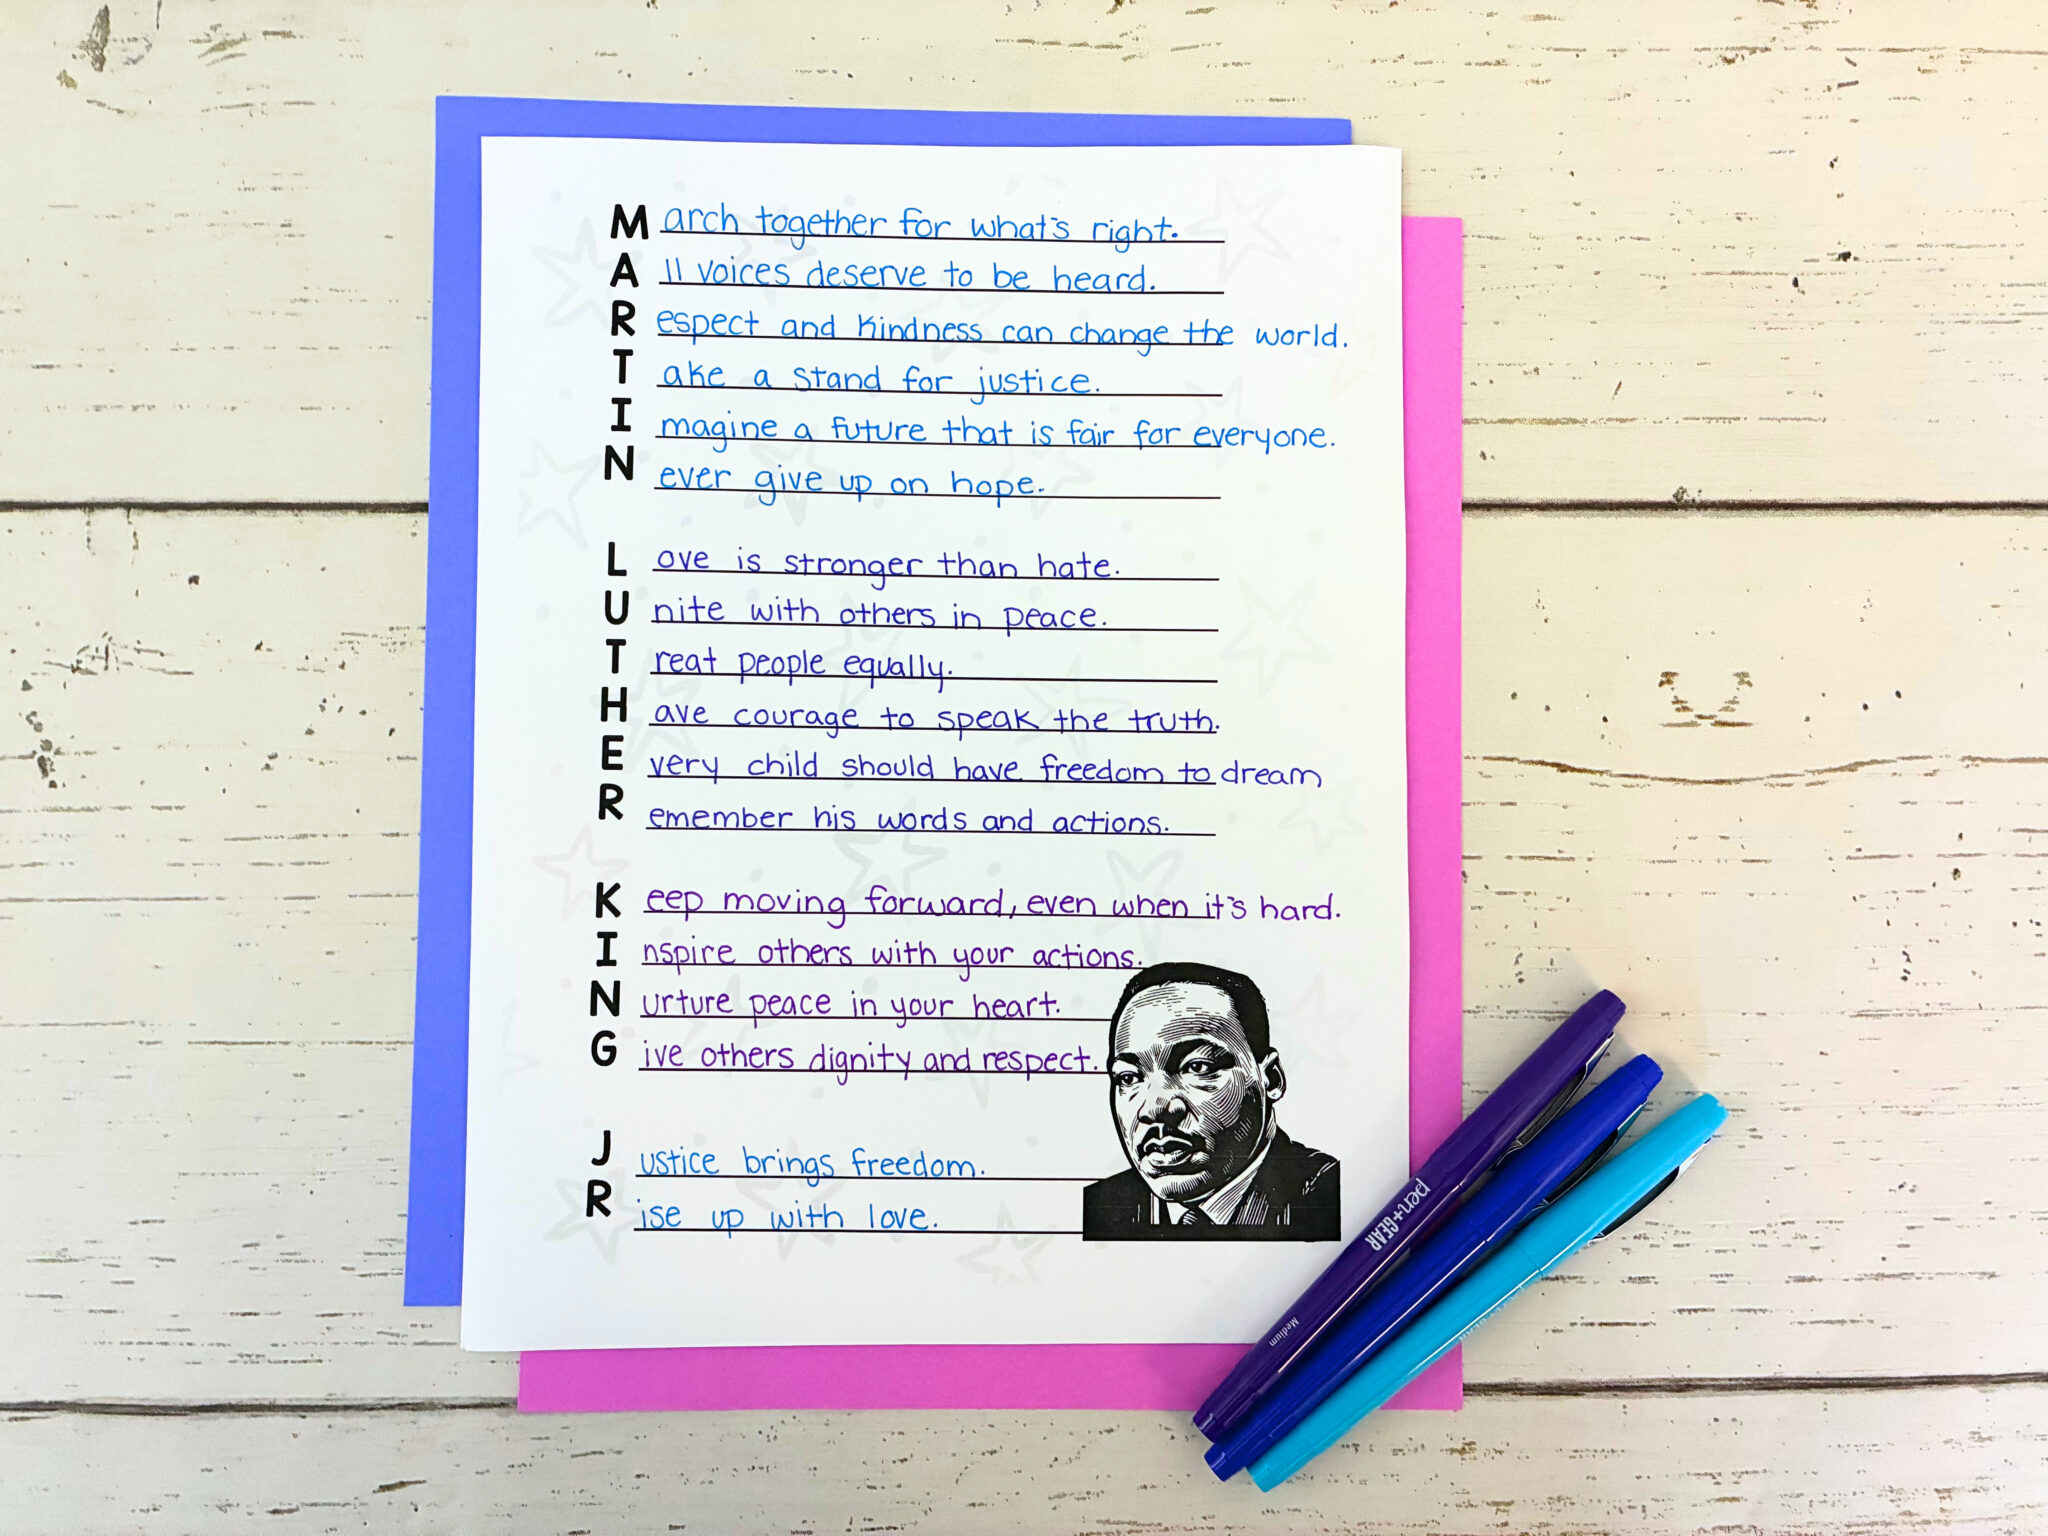 March together for what's right.
All voices deserve to be heard.
Respect and kindness can change the world.
Take a stand for justice.
Imagine a future that is fair for everyone.
Never give up on hope.
Love is stronger than hate.
Unite with others in peace.
Treat people equally.
Have courage to speak the truth.
Every child should have freedom to dream
Remember his words and actions.
Keep moving forward, even when it's hard.
Inspire others with your actions.
Nurture peace in your heart.
Give others dignity and respect.
Justice brings freedom.
Rise up with love.
pen+GEAR
Medium